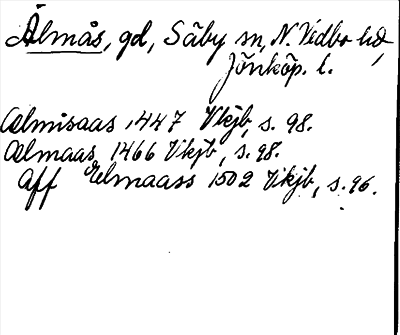 Älmås, gd, Säby sn, N. Vedbo hd,
Jönköp. l.
Ælmisaas 1447 Vkjb, s. 98.
Ælmaas 1466 Vkjb, s. 98.
Aff Elmaass 1502 Vkjb, s. 96.